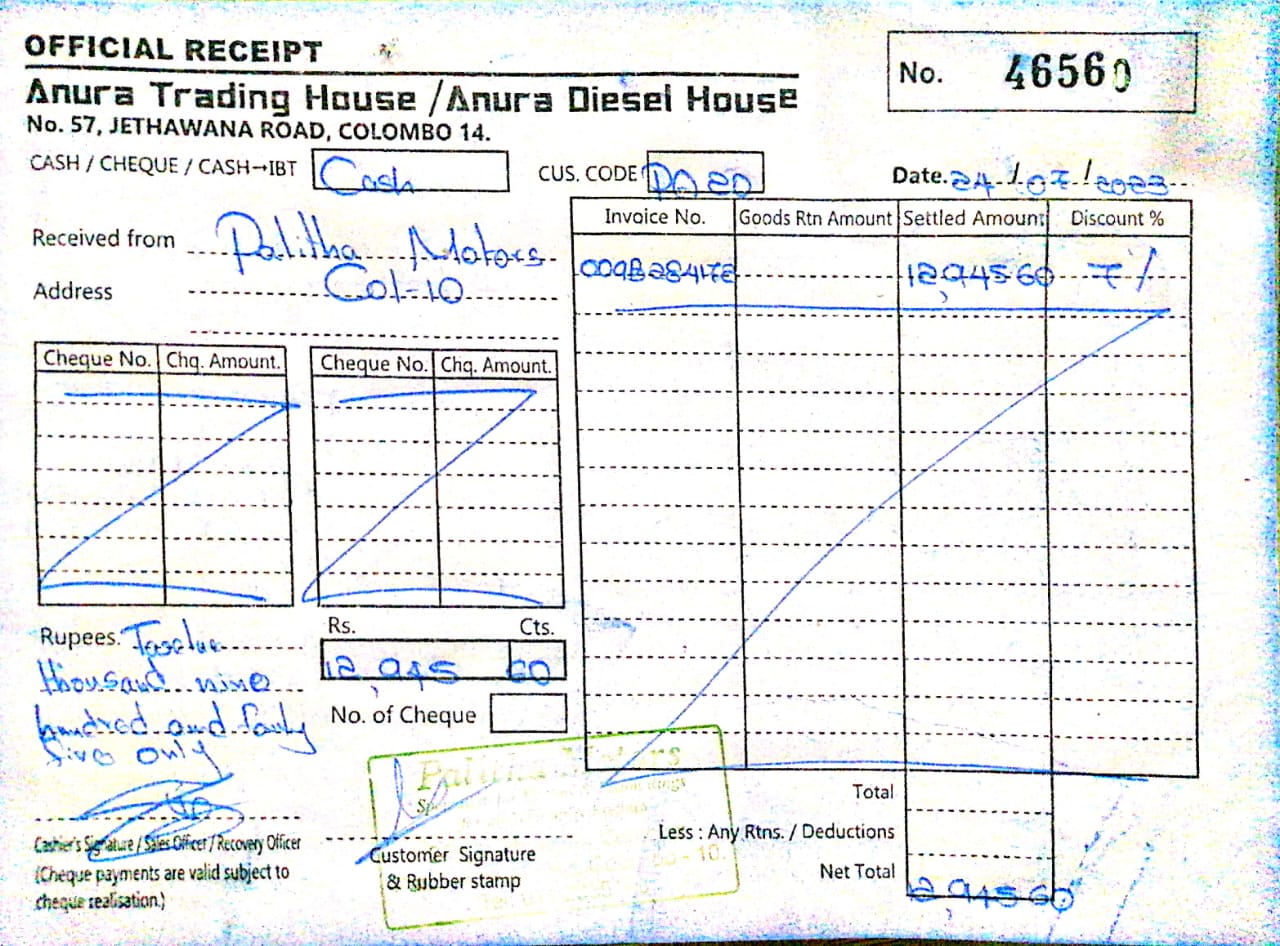 OFFICIAL RECEIPT
Anura Trading House / Anura Diesel House
No. 57, JETHAWANA ROAD, COLOMBO 14.
No. 46560
CASH / CHEQUE / CASH→IBT Cash
CUS. CODE PA 20
Date. 24/07/2023
Received from Palitha Motors
Address Col-10
Invoice No. Goods Rtn Amount Settled Amount Discount %
12,945 60 7%
Cheque No. Chq. Amount. Cheque No. Chq. Amount.
Rupees. Twelve
thousand nine
hundred and forty
five only
Rs. Cts.
12,945 60
No. of Cheque
Cashier's Signature / Sales Officer / Recovery Officer
(Cheque payments are valid subject to
cheque realisation.)
Palitha Motors
Customer Signature
& Rubber stamp
Total
Less : Any Rtns. / Deductions
Net Total 12,945 60